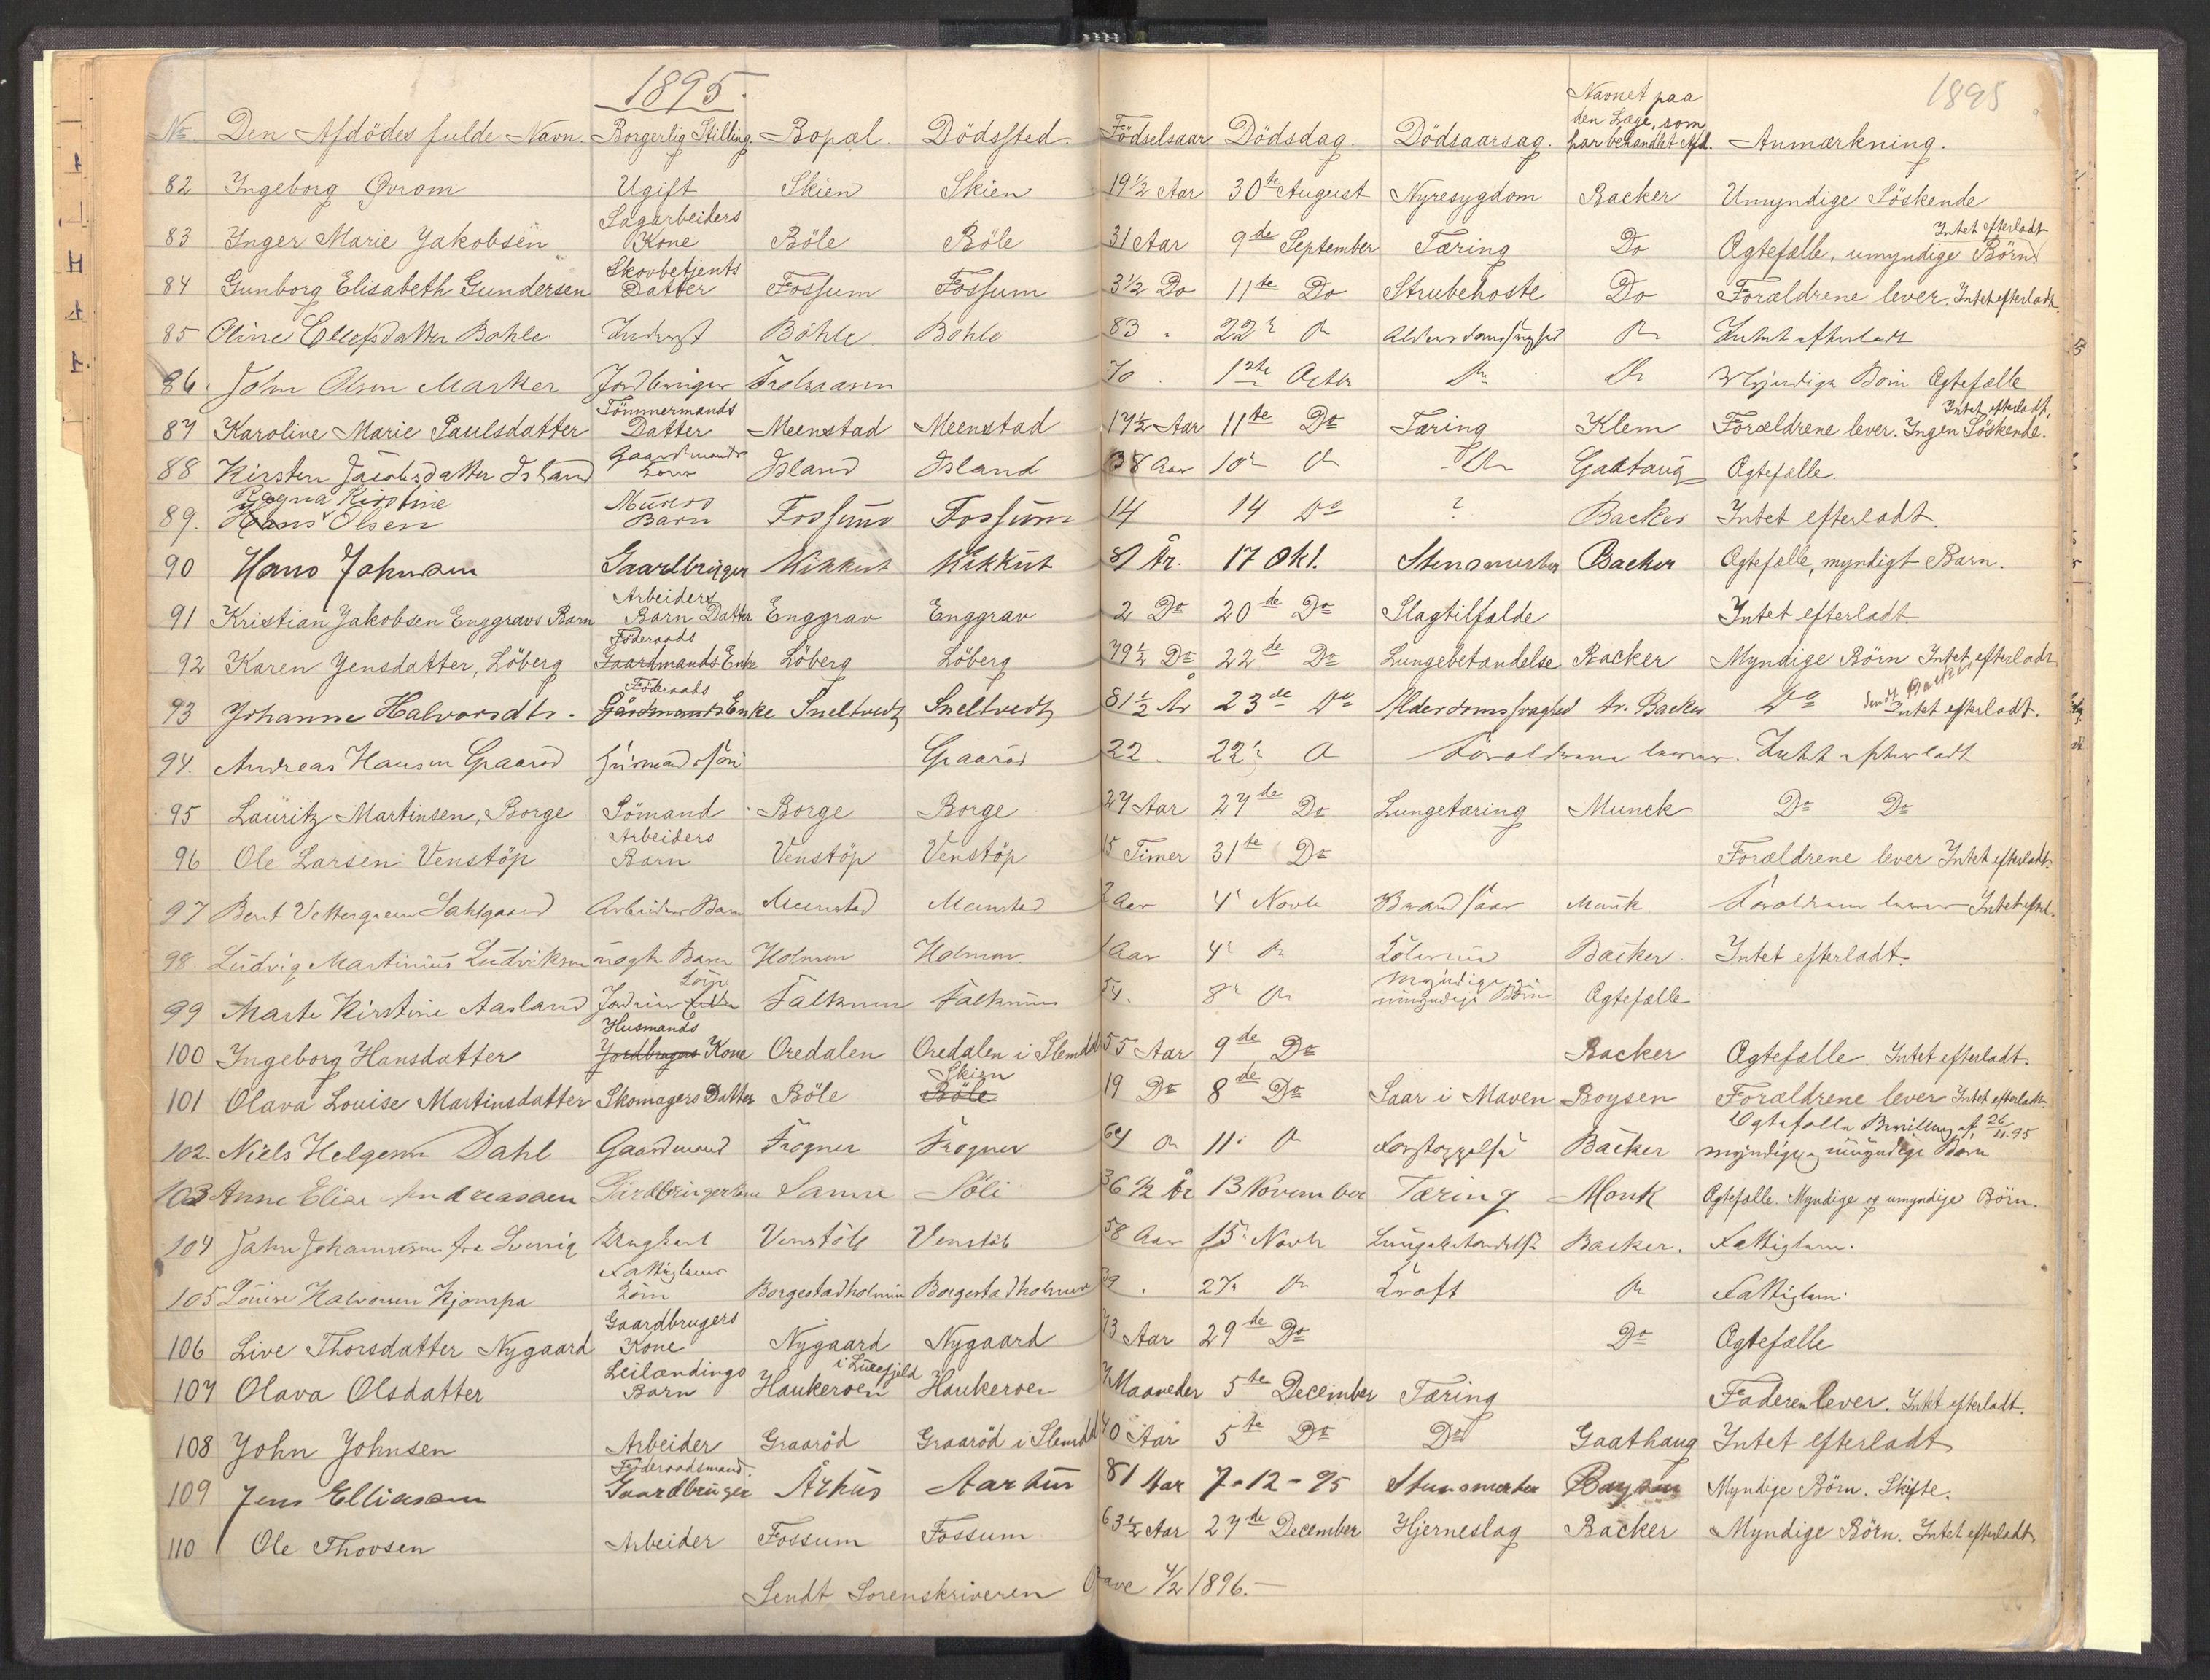 1895.
1895
No Den Afdödes fulde Navn. Borgerlig Stilling. Bopæl. Dödssted. Födselsaar Dödsdag. Dödsaarsag. Navnet paa den Læge, som har behandlet Afd. Anmærkning.
82 Ingeborg Qvrom Ugift Skien Skien 19 1/2 Aar 30te August Nyresygdom Backer Umyndige Söskende
83 Inger Marie Jakobsen Sagarbeiders Kone Böle Böle 31 Aar 9de September Tæring Do Ægtefælle, umyndige Börn. Intet efterladt
84 Gunborg Elisabeth Gundersen Skovbetjents Datter Fossum Fossum 3 1/2 Do 11te Do Strubehoste Do Forældrene lever. Intet efterladt.
85 Oline Ellefsdatter Böhle Inderst Böhle Böhle 83 22 Intet efterladt
86. John Olsen Marker Jordbruger 70 1ste Octbr Myndige Börn Ægtefælle
87 Karoline Marie Paulsdatter Tömmermands Datter Meenstad Meenstad 17 1/2 Aar 11te Do Tæring Klem Forældrene lever. Ingen Söskende. Intet efterladt.
88 Kirsten Jacobsdatter Island Gaardmands Kone Island Island 38 Aar 10 Do Do Gaataug Ægtefælle.
89. Hans Ragna Kirstine Olsen Murers Barn Fossum Fossum 14 14 Do ? Backer Intet efterladt.
90 Hans Johnsen Gaardbruger Mikkut Mikkut 81 År. 17 Okt. Stensmerter Backer Ægtefælle, myndigt Barn.
91 Kristian Jakobsen Enggravs Barn Arbeiders Barn Datter Enggrav Enggrav 2 Do 20de Do Slagtilfælde Intet efterladt.
92 Karen Jensdatter, Löberg Gaardmands Föderaads Enke Löberg Löberg 79 1/2 Do 22de Do Lungebetændelse Backer Myndige Börn Intet efterladt
93 Johanne Halvorsdtr. Gårdmands Föderaads Enke Sneltvedt Sneltvedt 81 1/2 År 23de Do Alderdomssvaghed Dr. Backer Do Intet efterladt.
94. Andreas Hansen Graaröd Husmandssön Graaröd 22 22 Do Forældrene lever. Intet efterladt
95 Lauritz Martinsen, Borge Sömand Borge Borge 27 Aar 27de Do Lungetæring Munck Do Do
96 Ole Larsen Venstöp Arbeiders Barn Venstöp Venstöp 15 Timer 31te Do Forældrene lever Intet efterladt.
97 Bert Vettergreen Sahlgaard Arbeiders Barn Meenstad Meenstad 2 Aar 4 Novbr Brandsaar Munk Forældrene lever Intet efterl.
98. Ludvig Martinius Ludviksen uægte Barn Holmen Holmen 1 Aar 4 Do Backer. Intet efterladt.
99 Marte Kirstine Aasland Falkum Falkum 54. 8 Do myndige og umyndige Börn Ægtefælle
100 Ingeborg Hansdatter Jordbrugers Husmands Kone Oredalen Oredalen i Slemdal 55 Aar 9de Do Backer Ægtefælle. Intet efterladt.
101 Olava Louise Martinsdatter Skomagers Datter Böle Böle Skien 19 Do 8de Do Saar i Maven Boysen Forældrene lever Intet efterladt.
102. Niels Helgesen Dahl Gaardmand Frogner Frogner 64 Do 11 Do Forstoppelse Backer Ægtefælle Bevilling af 26/11.95 myndige og umyndige Börn
103 Anne Elise Andreassen Gårdbrugerkone Sanne Söli 36 1/2 År 13 November Tæring Monk Ægtefælle. Myndige og umyndige Börn.
104 John Johannesen fra Sverrig Ungkarl Venstöb Venstöb 58 Aar 15 Novbr Lungebetændelse Backer. Fattiglem.
105 Louise Halvorsen Kjompa Fattiglems Borgestadholmen Borgestadholmen 39 27 Do Kræft Do Fattiglem.
106 Live Thorsdatter Nygaard Gaardbrugers Kone Nygaard Nygaard 73 Aar 29de Do Do Ægtefælle
107 Olava Olsdatter Leilændings Barn Haukeroen i Luxefjeld Haukeroen 7 Maaneder 5te December Tæring Faderen lever. Intet efterladt.
108 John Johnsen Arbeider Graaröd Graaröd i Slemdal 40 Aar 5te Do Do Gaathaug Intet efterladt
109 Jens Elliasen Föderaadsmand. Gaardbruger Århus Aarhus 81 Aar 7-12-95 Stensmerter Boysen Myndige Börn. Skifte.
110 Ole Thovsen Arbeider Fossum Fossum 63 1/2 Aar 27de December Hjerneslag Backer Myndige Börn. Intet efterladt.
Sendt Sorenskriveren Aave 4/2 1896.-